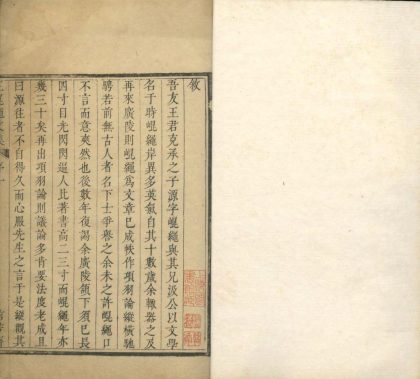 敘
吾友王君克承之子源字崐繩與其兄汲公以文學
名于時崐繩岸異多英氣自其十數歲余輒器之及
再來廣陵則崐繩爲文章已成帙作項羽論縱橫馳
騁若前無古人者名下士爭譽之余未之許崐繩口
不言而意爽然也後數年復海余廣陵頷下須已長
四寸目光閃閃逼人比著書高二三寸而崐繩年亦
幾三十矣再出項羽論則議論多肯要法度老成且
曰源往者不自得久而心嚴先生之言于是縱觀其